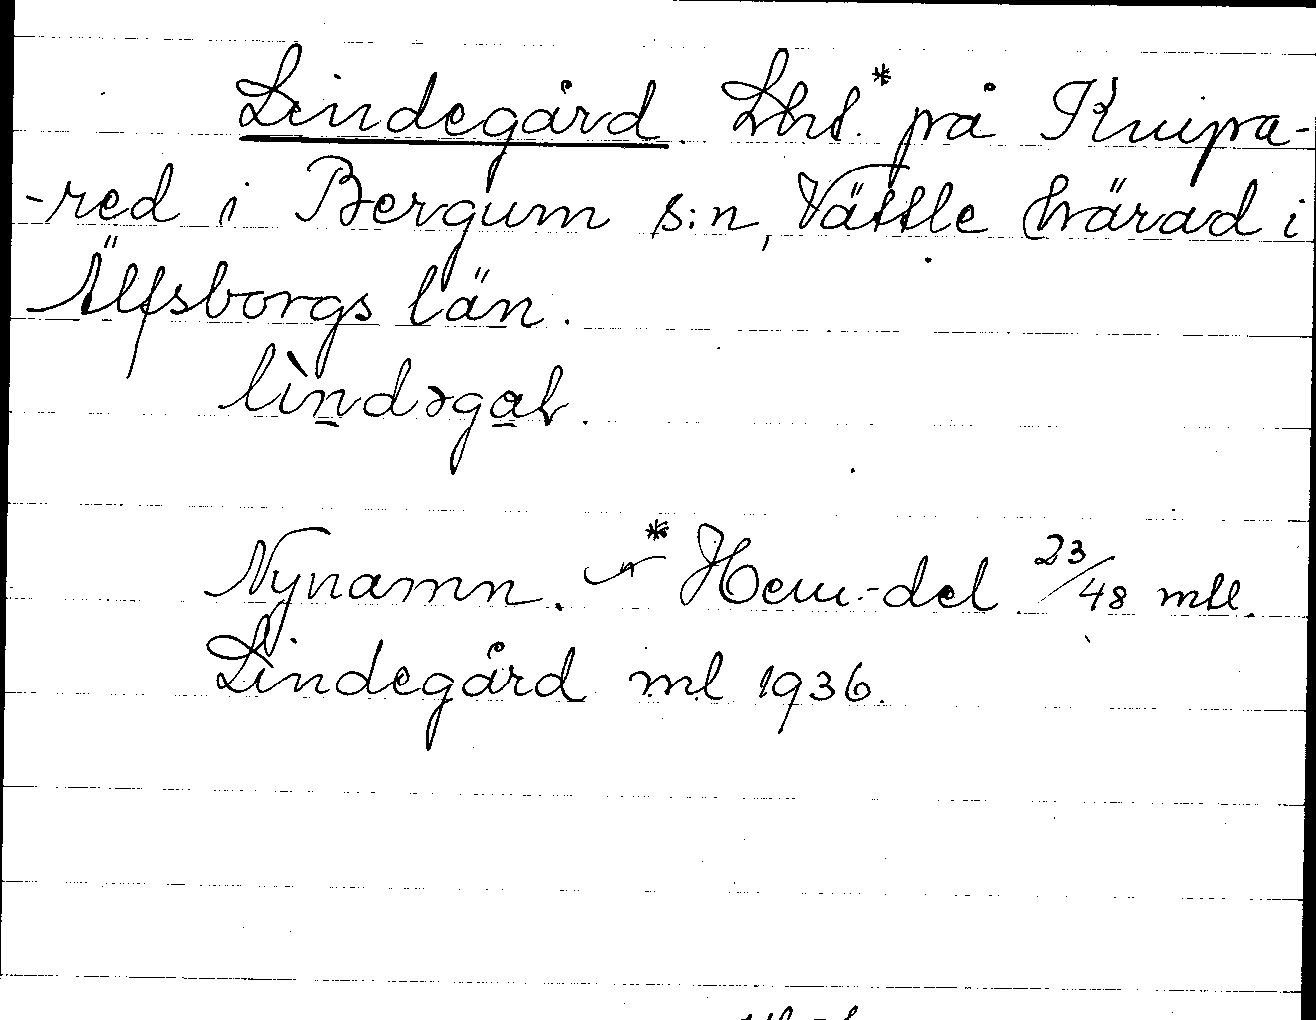 Lindegård Lht.* på Knipa-
-red i Bergum s:n, Vättle härad i
Älfsborgs län.
lìndəgaɫ.
Nynamn. * Hem.-del 23/48 mtl.
Lindegård ml 1936.